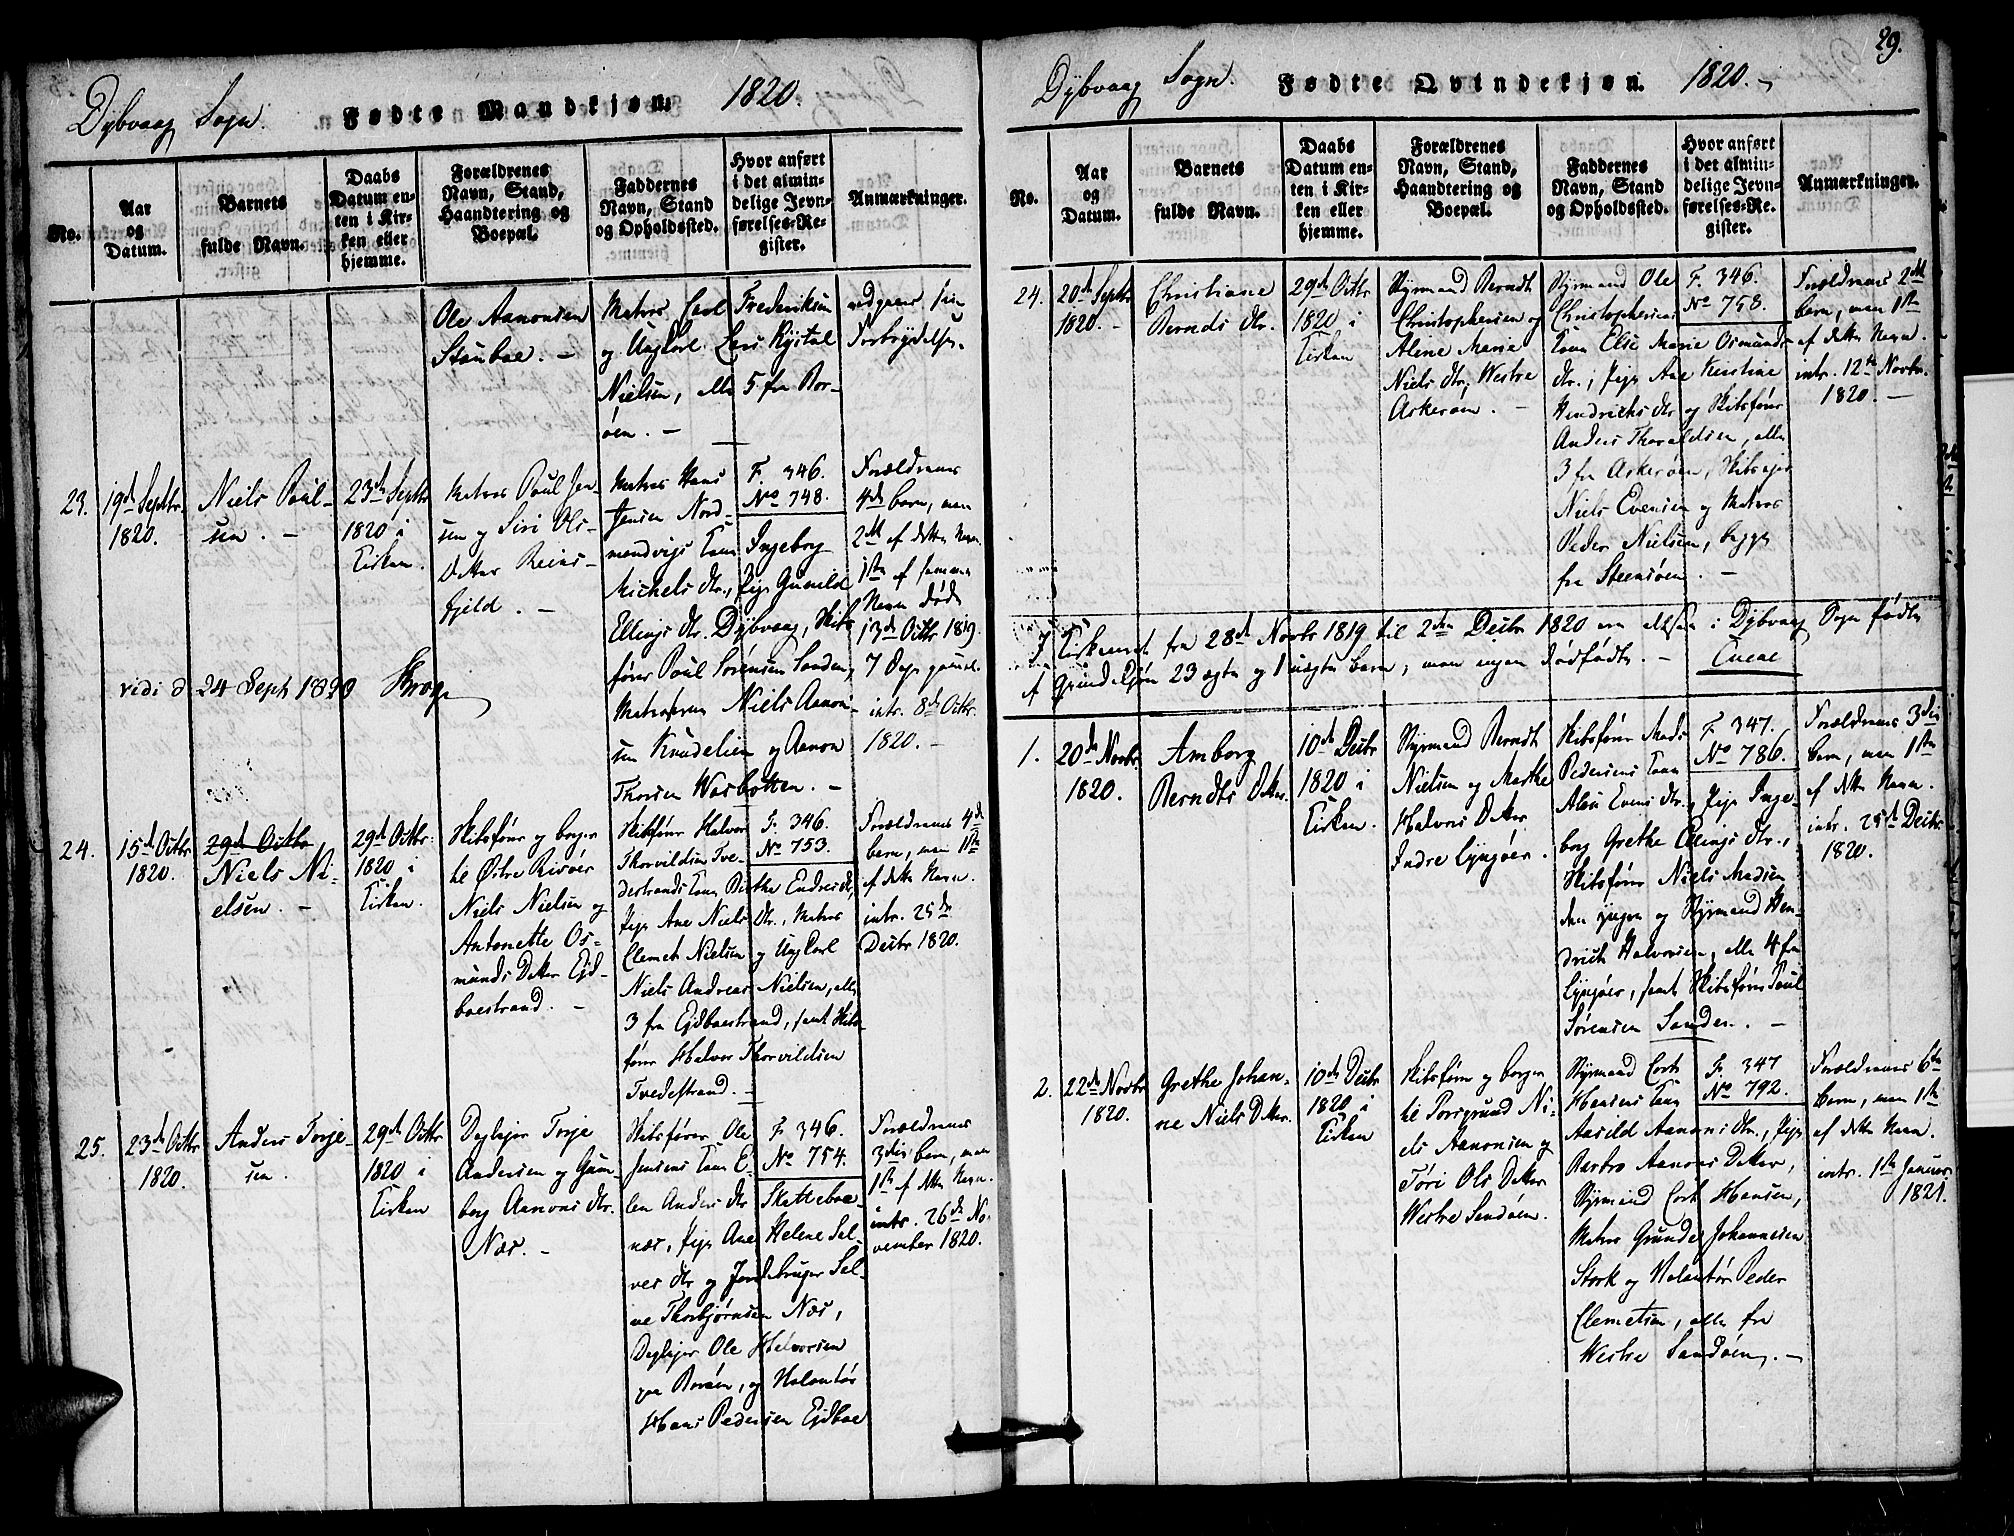 Dybvaag Sogn. Fødte Mandkjøn. 1820.
No.
Aar
og
Datum.
Barnets
fulde Navn.
Daabs
Datum en-
ten i Kir-
ken eller
hjemme.
Forældrenes
Navn, Stand,
Haandtering og
Boepæl.
Faddernes
Navn, Stand
og Opholdssted.
Hvor anført
i det almin-
delige Jevn-
førelses-Re-
gister.
Anmærkninger.
Ole Aanonsen
Stauboe. –
Matros Carl Frederiksen
og Ungkarl Lars
Nielsen, alle 5 fra Bor-
øen. –
vedgaaer sin
Forbrydelse.
23.
19de Septbr
1820.
Niels Poul-
sen. –
23de Septbr
1820 i
Kirken.
Matros Poul Jen-
sen og Siri Ols
Datter Reins-
fjeld. –
Matros Hans
Jensen Nord-
mandvigs Kone Ingeborg
Michels Dtr., Pige Gunild
Ellings Dtr. Dybvaag, Skibs
fører Poul Sørensen Sanden,
Matroserne Niels Aanon-
sen Knudelien og Aanon
Thorsen Wasbotten. –
F. 346.
No 748.
Forældrenes
4de barn, men
2det af dette Navn
1ste af samme
Navn døde
13de Octbr 1819.
7 Dage gammel.
intr. 8de Octbr.
1820. –
vidi d 24 Sept 1820 Krog
24.
15de Octbr
1820.
29de Octbr
Niels Ni-
elsen. –
29de Octbr
1820 i
Kirken.
Skibsfører og borger
til Østre Risøer
Niels Nielsen og
Antonette Os-
munds Datter Ejd-
boestrand. –
Skibsfører Halvor
Thorvildsen Tve-
destrands Kone Birthe Endres Dtr,
Pige Ane Niels Dtr., Matros
Clemet Nielsen og Ungkarl
Niels Andreas Nielsen, alle
3 fra Ejdboestrand, samt Skibs-
fører Halvor Thorvildsen
Tvedestrand. –
F. 346.
No 753.
Forældrenes 4de
barn, men 1ste
af dette Navn.
intr. 25de
Decbr 1820.
25.
23de Octbr
1820.
Anders Torje-
sen.
29de Octbr
1820 i
Kirken
Deglejer Torje
Andersen og Gun-
borg Aanons Dtr.
Næs. –
Skibsfører Ole
Jensens Kone E-
len Anders Dtr Skatteboe
næs, Pige Ane Helene Sal-
ves Dtr og Jordbruger Sal-
ve Thorbjørnsen Næs,
Deglejer Ole Halvorsen
paa Borøen, og Volontør
Hans Pedersen Ejdboe
F. 346.
No 754.
Forældrenes
3die barn, men
1ste af dette Navn.
intr. 26de No-
vember 1820.
29.
Dybvaag Sogn. Fødte Qvindekjøn. 1820. –
No.
Aar
og
Datum.
Barnets
fulde Navn.
Daabs
Datum en-
ten i Kir-
ken eller
hjemme.
Forældrenes
Navn, Stand,
Haandtering og
Boepæl.
Faddernes
Navn, Stand
og Opholdssted.
Hvor anført
i det almin-
delige Jevn-
førelses-Re-
gister.
Anmærkninger.
24.
20de Septbr
1820. –
Christiane
Bernds Dtr.
29de Octbr
1820 i
Kirken
Styrmand Berndt
Christophersen og
Aline Marie
Niels Dtr, Westre
Askerøen. –
Styrmand Ole
Christophersens
Kone Else Marie Osmunds
Dtr.; Pige Ane Kirstine
Hendrichs Dtr og Skibsfører
Anders Thoraldsen, alle
3 fra Askerøen, Skibsejer
Niels Evensen og Matros
Peder Nielsen, begge
fra Steensøen. –
F. 346.
No 758.
Forældrenes 2det
barn, men 1ste
af dette Navn.
intr. 12te Novbr.
1820. –
I Kirkeaaret fra 28de Novbr 1819 til 2den Decbr 1820 ere altsaa i Dybvaag Sogn fødte
af Qvindekjøn 23 ægte og 1 uægte barn, men ingen dødfødte. –
1.
20de Novbr.
1820.
Amborg
Berndts Datter.
10de Decbr
1820 i
Kirken.
Styrmand Berndt
Nielsen og Marthe
Halvors Datter
Indre Lyngøer.
Skibsfører Mads
Pedersens Kone
Alou Evens Dtr., Pige Inge-
borg Grethe Ellings Dtr.,
Skibsfører Niels Madsen
den yngre og Styrmand Hen-
drich Halvorsen, alle 4 fra
Lyngøer, samt Skibsfører Poul
Sørensen Sanden. –
F. 347.
No 786.
Forældrenes 3die
barn, men 1ste
af dette Navn.
intr. 25de Decbr
1820.
2.
22de Novbr
1820.
Grethe Johan-
ne Niels Datter.
10de Decbr
1820 i
Kirken
Skibsfører og borger
til Porsgrund Ni-
els Aanonsen og
Tøri Ols Datter
Westre Sandøen.
Styrmand Cort
Hansens Kone
Aasild Aanons Dtr., Pige
Barbro Aanons Datter,
Styrmand Cort Hansen,
Matros Grunde Johannesen
Stork og Volontør Peder
Clemetsen, alle fra
Westre Sandøen. –
F. 347
No 792.
Forældrenes 6te
barn, men 1ste
af dette Navn.
intr. 1ste Januar
1821.